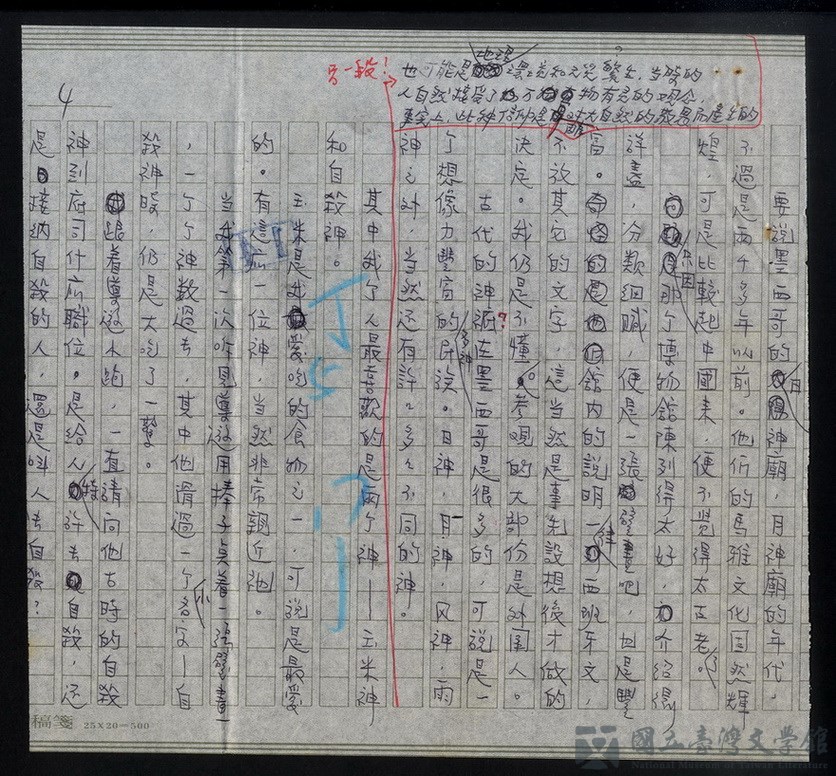 另一段!
也可能是地理環境和天災繁多,當時的
人自然接受了萬物有靈的觀念。
事實上,此種信仰是因對大自然的敬畏而產生的
4
要說墨西哥的日神廟,月神廟的年代,
不過是兩千多年以前。他們的馬雅文化固然輝
煌,可是比較起中國來,便不覺得太古老了。
只因那個博物館陳列得太好,介紹得
詳盡,分類細膩,便是一張壁畫吧,也是豐
富。館內的說明一律西班牙文,
不放其它的文字,這當然是事先設想後才做的
決定。我仍是不懂。參觀的大部份是外國人。
古代的神祇在墨西哥是很多的,可說是一
個想像力豐富的多神民族。日神,月神,風神,雨
神之外,當然還有許多多不同的神。
其中我個人最喜歡的是兩個神——玉米神
和自殺神。
玉米是我愛吃的食物之一,可說是最愛
的。有這麼一位神,當然非常親近祂。
當我第一次聽見導遊用棒子點著一張壁畫
,一個個神數過去,其中他滑過一個小名字——自
殺神時,仍是大吃了一驚。
跟着導遊小跑,一直請問他古時的自殺
神到底司什麼職位。是給人特許去自殺,還
是接納自殺的人,還是叫人去自殺?
稿箋 25X20=500
國立臺灣文學館
National Museum of Taiwan Literature